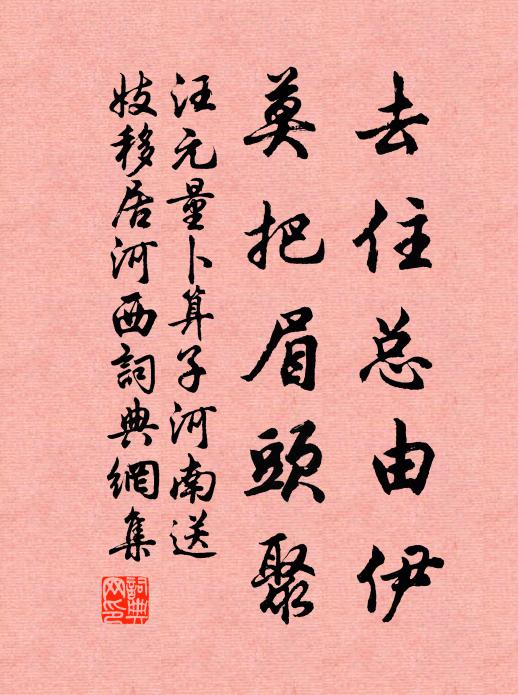 去住总由伊
莫把眉頭聚
汪元量卜算子河南送
妓移居河西詞典網集
詞典网印